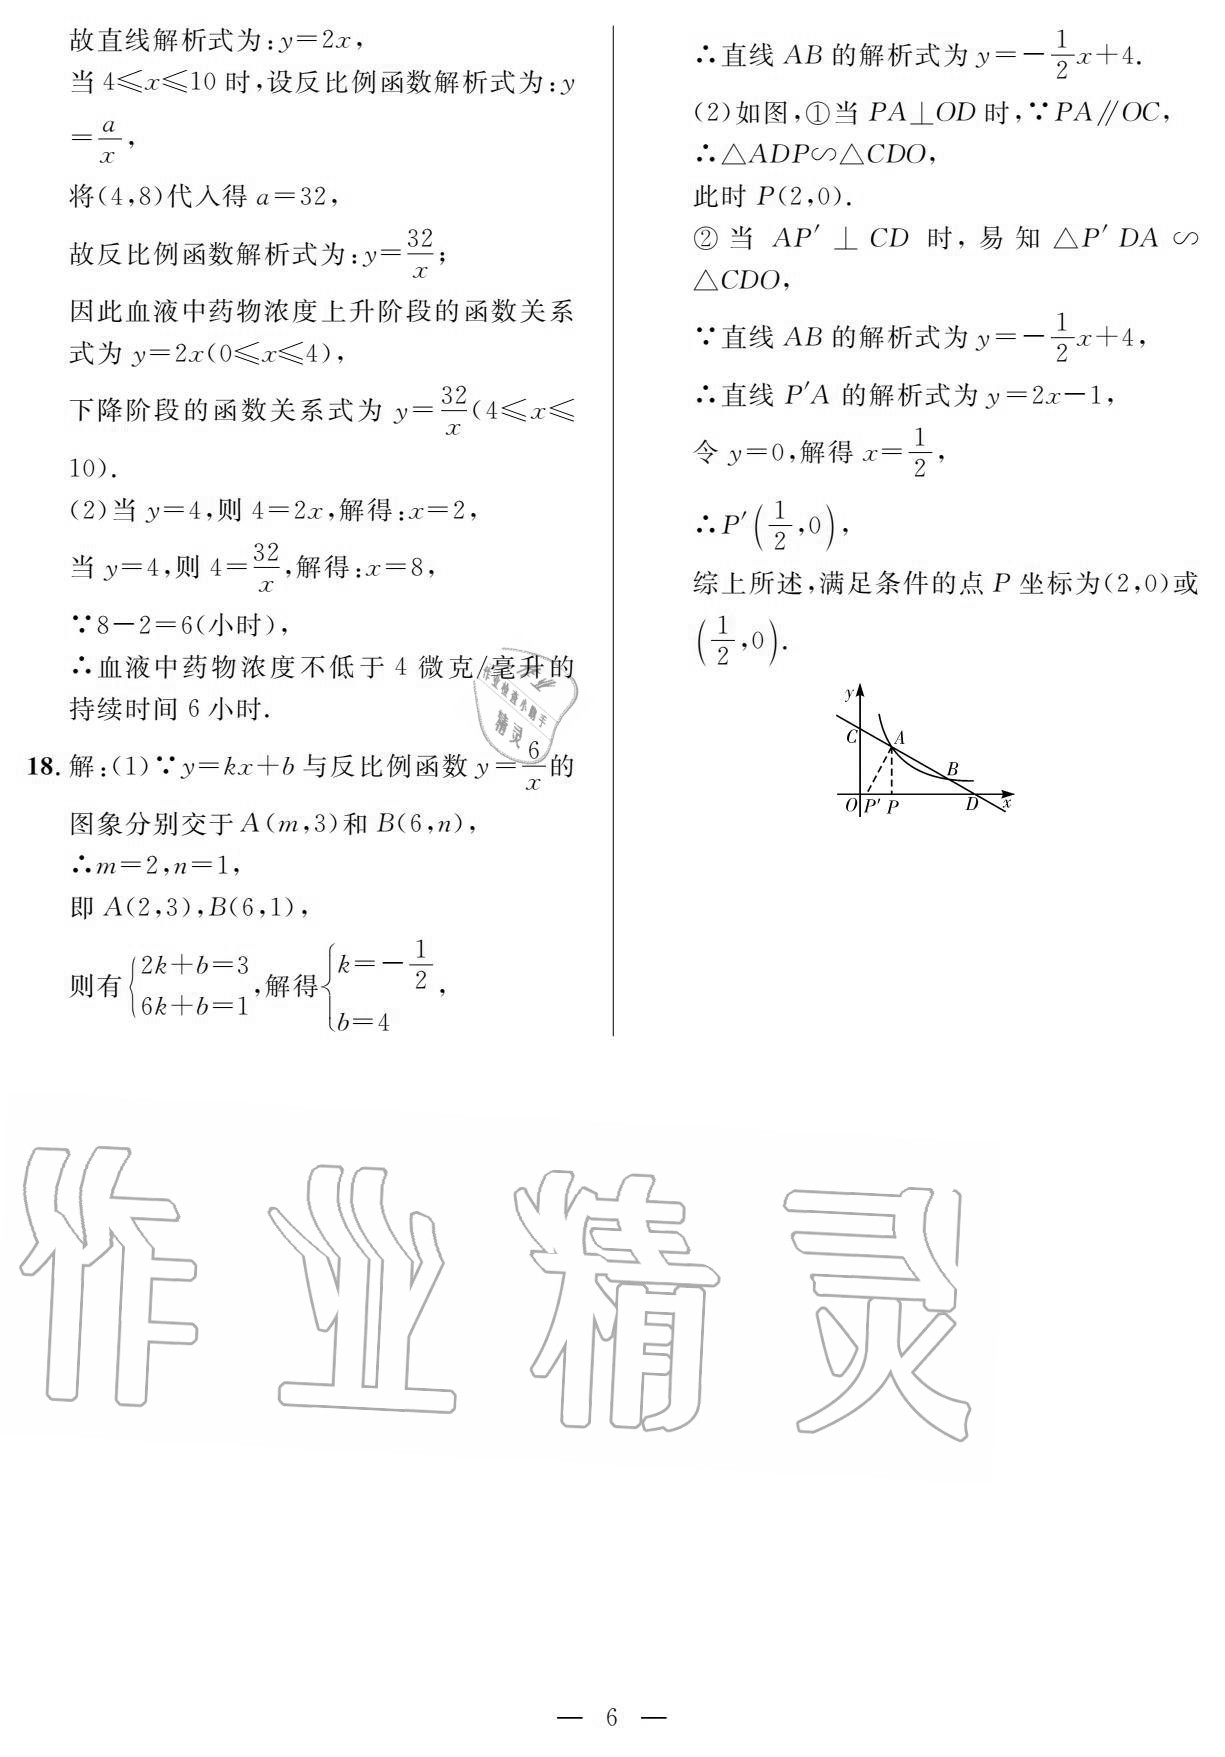 故直线解析式为:y=2x,
当 4≤x≤10 时,设反比例函数解析式为:y
=a/x,
将(4,8)代入得 a=32,
故反比例函数解析式为:y=32/x;
因此血液中药物浓度上升阶段的函数关系
式为 y=2x(0≤x≤4),
下降阶段的函数关系式为 y=32/x(4≤x≤
10).
(2)当 y=4,则 4=2x,解得:x=2,
当 y=4,则 4=32/x,解得:x=8,
∵8-2=6(小时),
∴血液中药物浓度不低于 4 微克/毫升的
持续时间 6 小时.
作业检查小助手
精灵
18. 解:(1)∵y=kx+b 与反比例函数 y=6/x 的
图象分别交于 A(m,3)和 B(6,n),
∴m=2,n=1,
即 A(2,3),B(6,1),
则有{2k+b=3 6k+b=1,解得{k=-1/2 b=4,
∴直线 AB 的解析式为 y=-1/2x+4.
(2)如图,①当 PA⊥OD 时,∵PA∥OC,
∴△ADP∽△CDO,
此时 P(2,0).
②当 AP′⊥CD 时,易知△P′DA∽
△CDO,
∵直线 AB 的解析式为 y=-1/2x+4,
∴直线 P′A 的解析式为 y=2x-1,
令 y=0,解得 x=1/2,
∴P′(1/2,0),
综上所述,满足条件的点 P 坐标为(2,0)或
(1/2,0).
y
C A
B
O P′ P D x
作业精灵
— 6 —